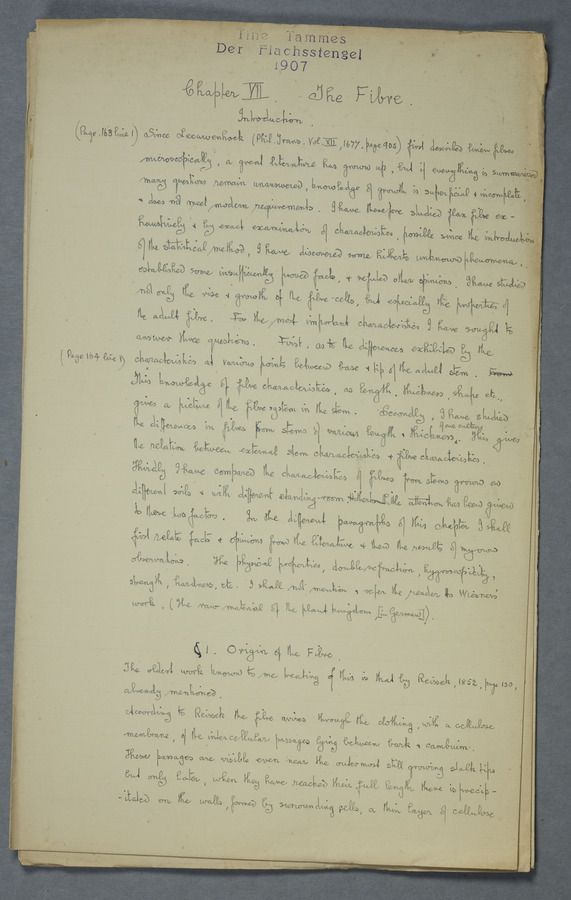 Tine Tammes
Der Flachsstengel
1907
Chapter VII. The Fibre.
Introduction.
(Page 163 line 1) Since Leeuwenhoek (Phil. Trans. Vol. XII, 1677, page 905) first described linen fibres
microscopically, a great literature has grown up, but if everything is summarized
many questions remain unanswered, knowledge of growth is superficial & incomplete,
& does not meet modern requirements. I have therefore studied flax fibre ex-
haustively & by exact examination of characteristics, possible since the introduction
of the statistical method, I have discovered some hitherto unknown phenomena,
established some insufficiently proved facts, & refuted other opinions. I have studied
not only the rise & growth of the fibre-cells, but especially the properties of
the adult fibre. For the most important characteristics I have sought to
answer three questions. First, as to the differences exhibited by the
(Page 164 line 1) characteristics at various points between base & tip of the adult stem. From
This knowledge of fibre characteristics, as length, thickness, shape etc.,
gives a picture of the fibre system in the stem. Secondly, I have studied
the differences in fibres from stems of various length & thickness, of one culture. This gives
the relation between external stem characteristics & fibre characteristics.
Thirdly I have compared the characteristics of fibres from stems grown on
different soils & with different standing-room. Hitherto little attention has been given
to these two factors. In the different paragraphs of this chapter I shall
first relate facts & opinions from the literature & then the results of my own
observations. The physical properties, double refraction, hygroscopicity,
strength, hardness, etc. I shall not mention & refer the reader to Wiesners'
work. (The raw material of the plant kingdom, [in German]).
§ 1. Origin of the Fibre.
The oldest work known to me treating of this is that by Reissek, 1852, page 130,
already mentioned.
According to Reissek the fibre arises through the clothing, with a cellulose
membrane, of the intercellular passages lying between bark & cambium.
These passages are visible even near the outermost still growing stalk tips
but only later, when they have reached their full length there is precip-
-itated on the walls, formed by surrounding cells, a thin layer of cellulose.